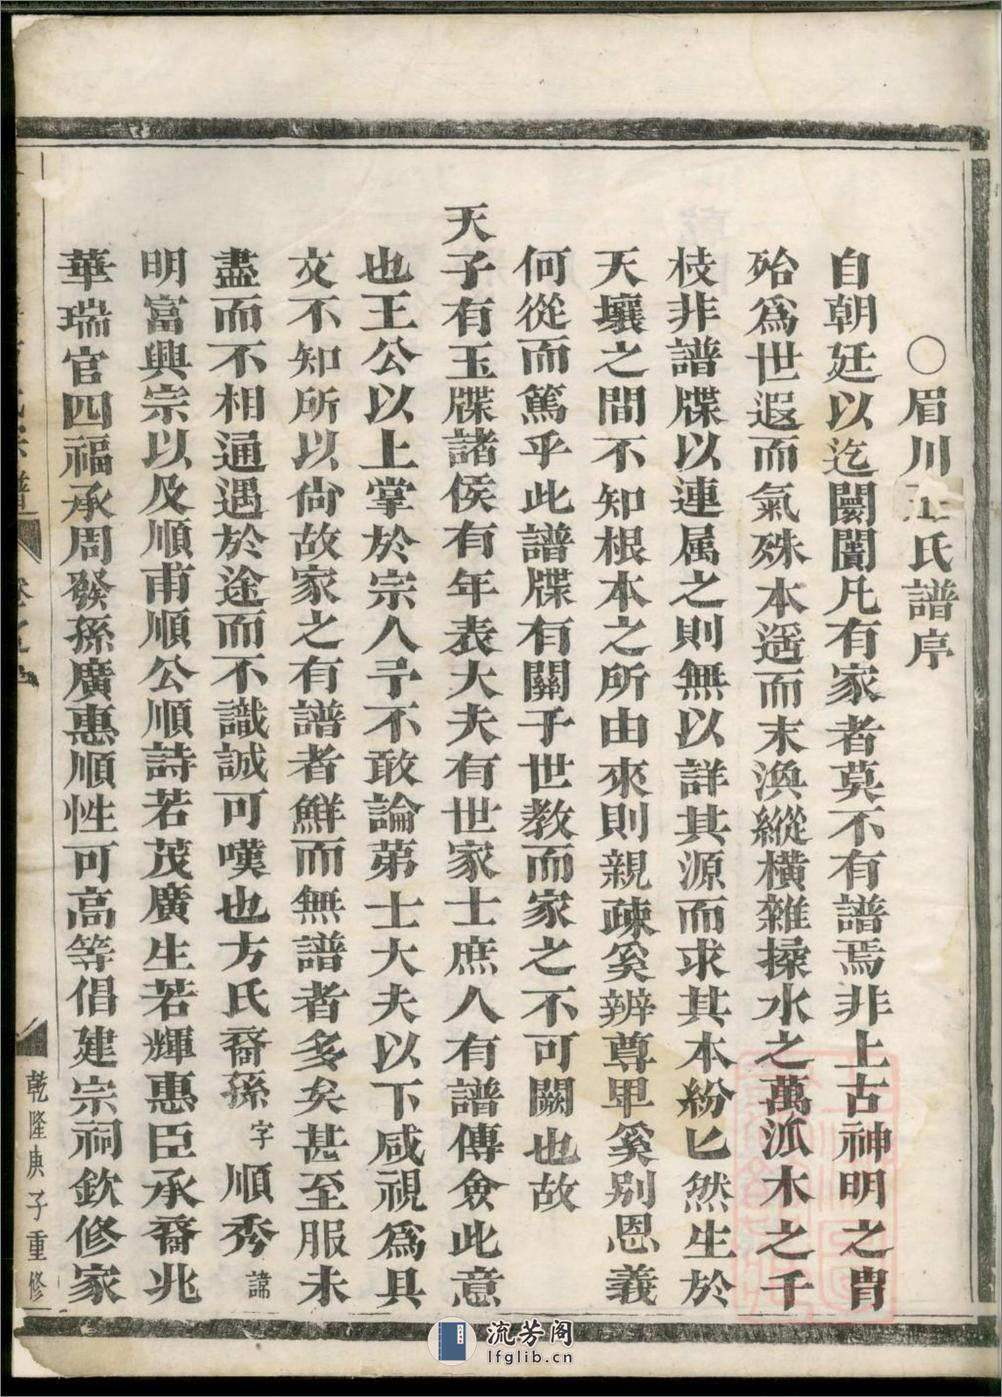 ○眉川氏譜序
自朝廷以迄閿闠凡有家者莫不有譜焉非上古神明之冑
殆為世遐而氣殊本遥而末渙縱橫雜揉水之萬泒木之千
枝非譜牒以連属之則無以詳其源而求其本紛匕然生於
天壤之間不知根本之所由來則親疎奚辨尊卑奚别恩義
何從而篤乎此譜牒有關于世教而家之不可闕也故
天子有玉牒諸侯有年表大夫有世家士庶人有譜傳僉此意
也王公以上掌於宗人予不敢論第士大夫以下咸視為具
文不知所以尙故家之有譜者鮮而無譜者多矣甚至服未
盡而不相通遇於途而不識誠可嘆也方氏裔孫字順秀諱
明富興宗以及順甫順公順詩若茂廣生若輝惠臣承裔兆
華瑞官四福承周發孫廣惠順性可高等倡建宗祠欽修家
乾隆庚子重修
流芳阁
lfglib.cn